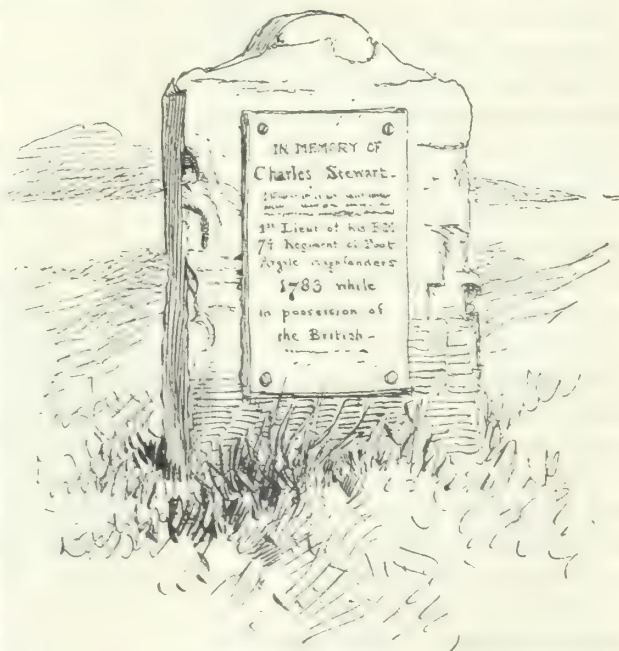 IN MEMORY OF
Charles Stewart.
1st Lieut of his BM
74 Regiment of Foot
Argyle Highlanders
1783 while
in possession of
the British.